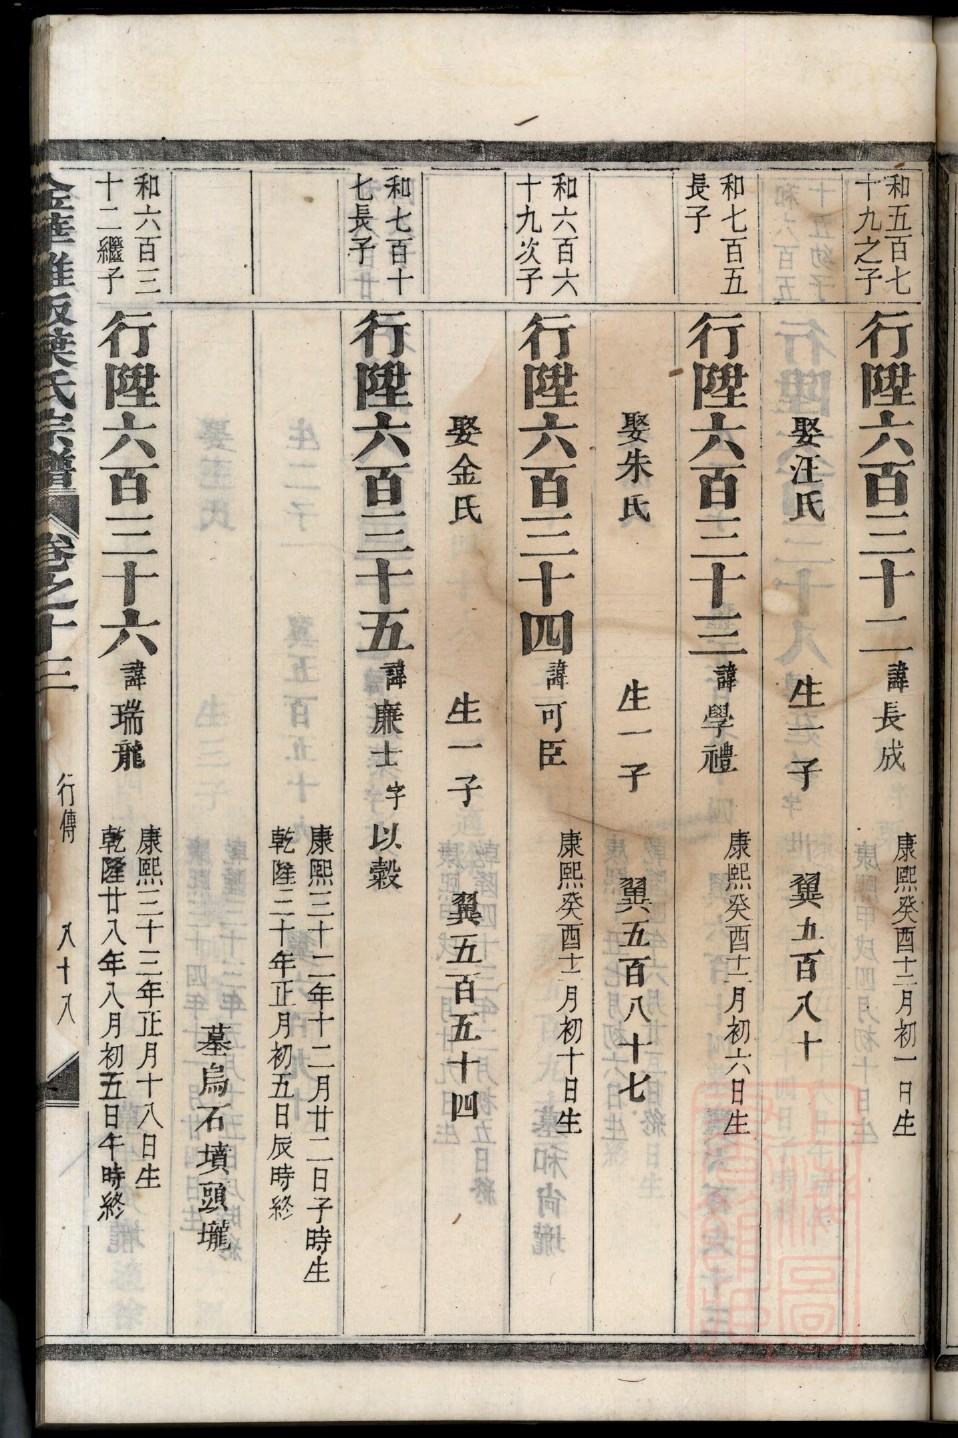 和五百七
十九之子
行陞六百三十二
諱長成
康熙癸酉十二月初一日生
娶汪氏 生一子 翼五百八十
和七百五
長子
行陞六百三十三
諱學禮
康熙癸酉十二月初六日生
娶朱氏 生一子 翼五百八十七
和六百六
十九次子
行陞六百三十四
諱可臣
康熙癸酉十二月初十日生
娶金氏 生一子 翼五百五十四
和七百十
七長子
行陞六百三十五
諱廉士 字以穀
康熙三十二年十二月廿二日子時生
乾隆三十年正月初五日辰時終
墓烏石墳頭壠
和六百三
十二繼子
行陞六百三十六
諱瑞龍
康熙三十三年正月十八日生
乾隆廿八年八月初五日午時終
葉氏宗譜 卷之十三 行傳 八十八